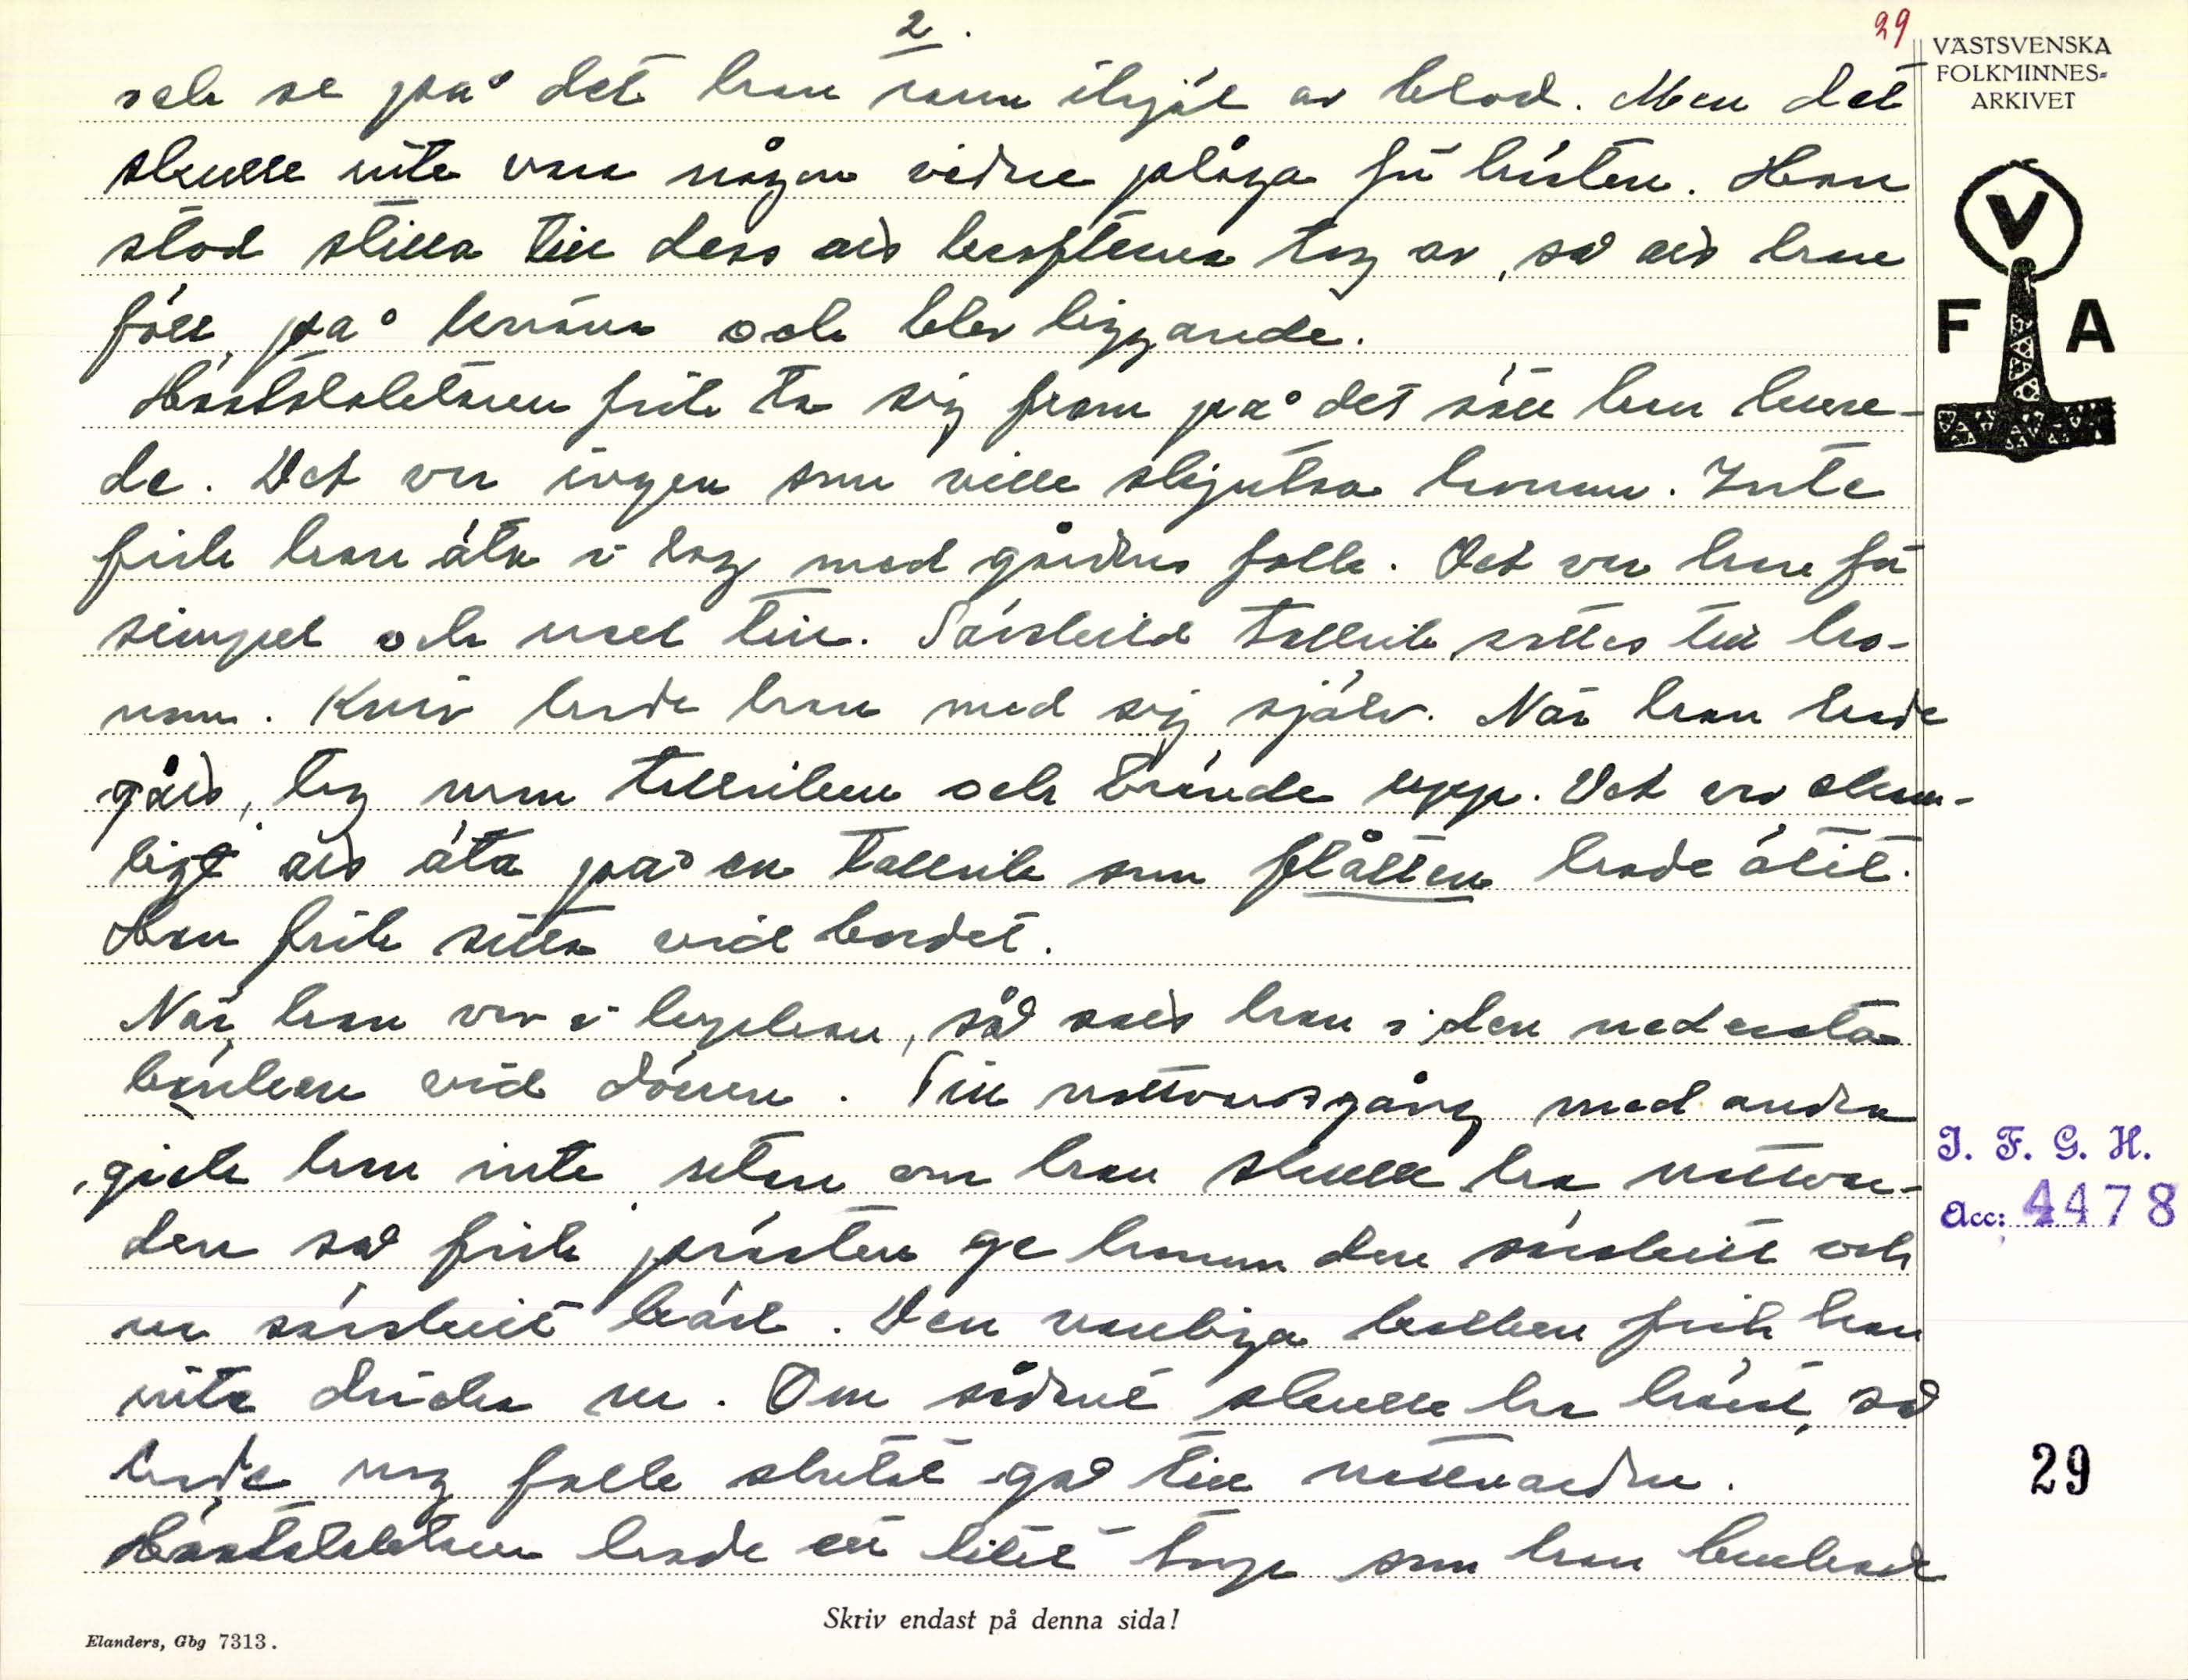 2.
29
och se på det han rann ihjäl av blod. Men det
skulle inte vara någon vidare plåga för hästen. Han
stod stilla till dess att krafterna tog av, så att han
föll på knäna och blev liggande.
Hästslaktaren fick ta sig fram på det sätt han kun-
de. Det var ingen som ville skjutsa honom. Inte
fick han äta i lag med gårdens folk. Det var han för
simpel och usel till. Särskild tallrik sattes till ho-
nom. Kniv hade han med sig själv. När han hade
gått, tog mom tallriken och brände upp. Det var skam-
ligt att äta på en tallrik som flåtten hade ätit.
Han fick sitta vid bordet.
När han var i kyrkan, så satt han i den nedersta
bänken vid dörren. Till nattvardsgång med andra
gick han inte utan om han skulle ha nattvar-
den så fick prästen ge honom den särskilt och
ur särskilt kärl. Den vanliga kalken fick han
inte dricka ur. Om sådant skulle ha hänt, så
hade nog folk slutat gå till nattvarden.
Hästslaktaren hade ett litet torp som han brukade
VÄSTSVENSKA
FOLKMINNES-
ARKIVET
V
F A
I. F. G. H.
Acc: 4478
29
Skriv endast på denna sida!
Elanders, Gbg 7313.